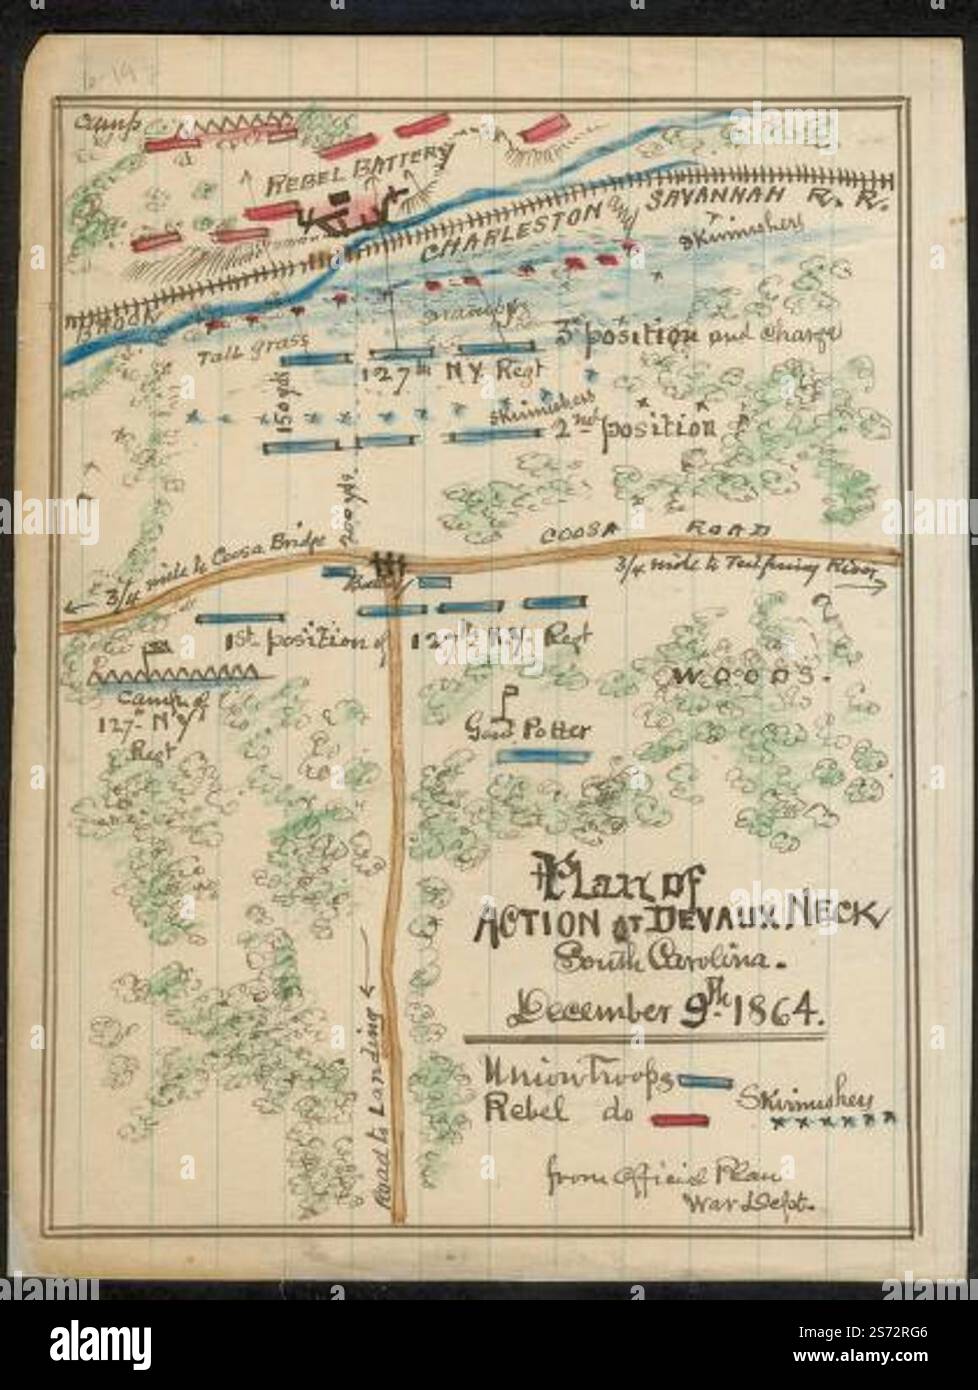 Camp
REBEL BATTERY
CHARLESTON and SAVANNAH R. R.
Skirmishers
BROOK
Tall grass
swampy
3d position and charge
127th NY Regt
150 yds
Skirmishers
2nd position
200 yds
COOSA ROAD
3/4 mile to Coosa Bridge
3/4 mile to Tulfiny River
1st position of 127th N.Y. Regt
WOODS.
Camp of
127th N Y
Regt
Genl Potter
Plan of
ACTION AT DEVAUX NECK
South Carolina.
December 9th 1864.
Road to Landing
Union Troops
Rebel do
Skirmishers
from Official Plan
War Dept.
alamy
Image ID: 2S72RG6
www.alamy.com